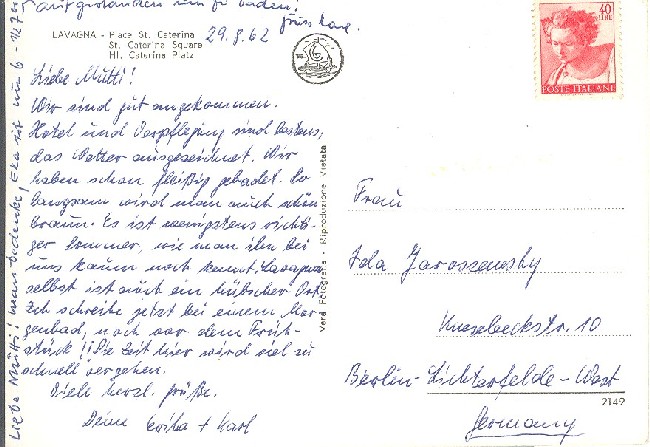 auf
29.8.62
LAVAGNA - Place St. Caterina
St. Caterina Square
Hl. Caterina Platz
40
LIRE
POSTE ITALIANE
Liebe Mutti!
Wir sind gut angekommen.
Hotel und Verpflegung sind bestens,
das Wetter ausgezeichnet. Wir
haben schon fleißig gebadet. So
langsam wird man auch schön
braun. Es ist wenigstens richti-
ger Sommer, wie man ihn bei
uns kaum noch kennt. Lavagna
selbst ist auch ein hübscher Ort.
Ich schreibe jetzt bei einem Mor-
genbad, noch vor dem Früh-
stück!! Die Zeit hier wird viel zu
schnell vergehen.
Viele herzl. Grüße.
Deine + Karl
Liebe Mutti! man bedenke!
Vera Fotografia - Riproduzione Vietata
Frau
Ida Jaroszewsky
Knesebeckstr. 10
Berlin-Lichterfelde-West
2149
Germany